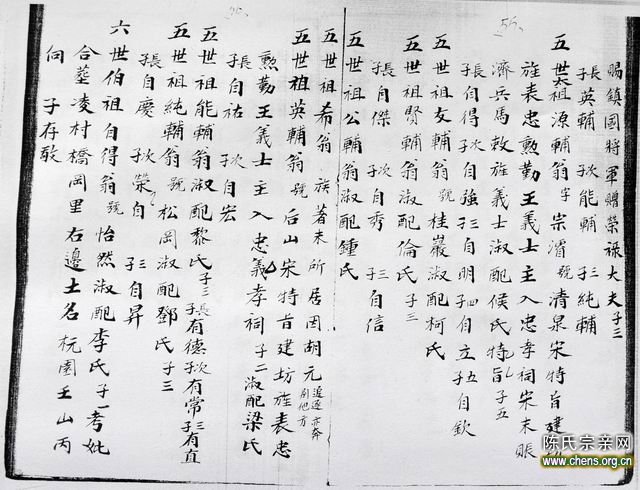 賜鎮國將軍贈榮祿大夫子三
長子英輔 次子能輔 三子純輔
五世太祖源輔翁字宗濱號清泉宋特旨建坊
旌表忠勲勤王義士主入忠孝祠宋末賑
濟兵馬敕旌義士淑配侯氏特旨子五
長子自得 次子自強 三子自明 四子自立 五子自欽
五世祖友輔翁號桂巖淑配柯氏
五世祖賢輔翁淑配倫氏子三
長子自傑 次子自秀 三子自信
五世祖公輔翁淑配鍾氏
五世祖希翁族著末所居因胡元追逐亦奔別他方
五世祖英輔翁號后山宋特旨建坊旌表忠
勲勤王義士主入忠義孝祠子二淑配梁氏
長子自祐 次子自宏
五世祖能輔翁淑配黎氏子三長子有德次子有常三子有直
五世祖純輔翁號松岡淑配鄧氏子三
長子自慶 次子榮自 三子自昇
六世伯祖自得翁號怡然淑配李氏子一考妣
合塟凌村橋岡里右邊土名杬園壬山丙
向 子存敬
陈氏宗亲网
www.chens.org.cn